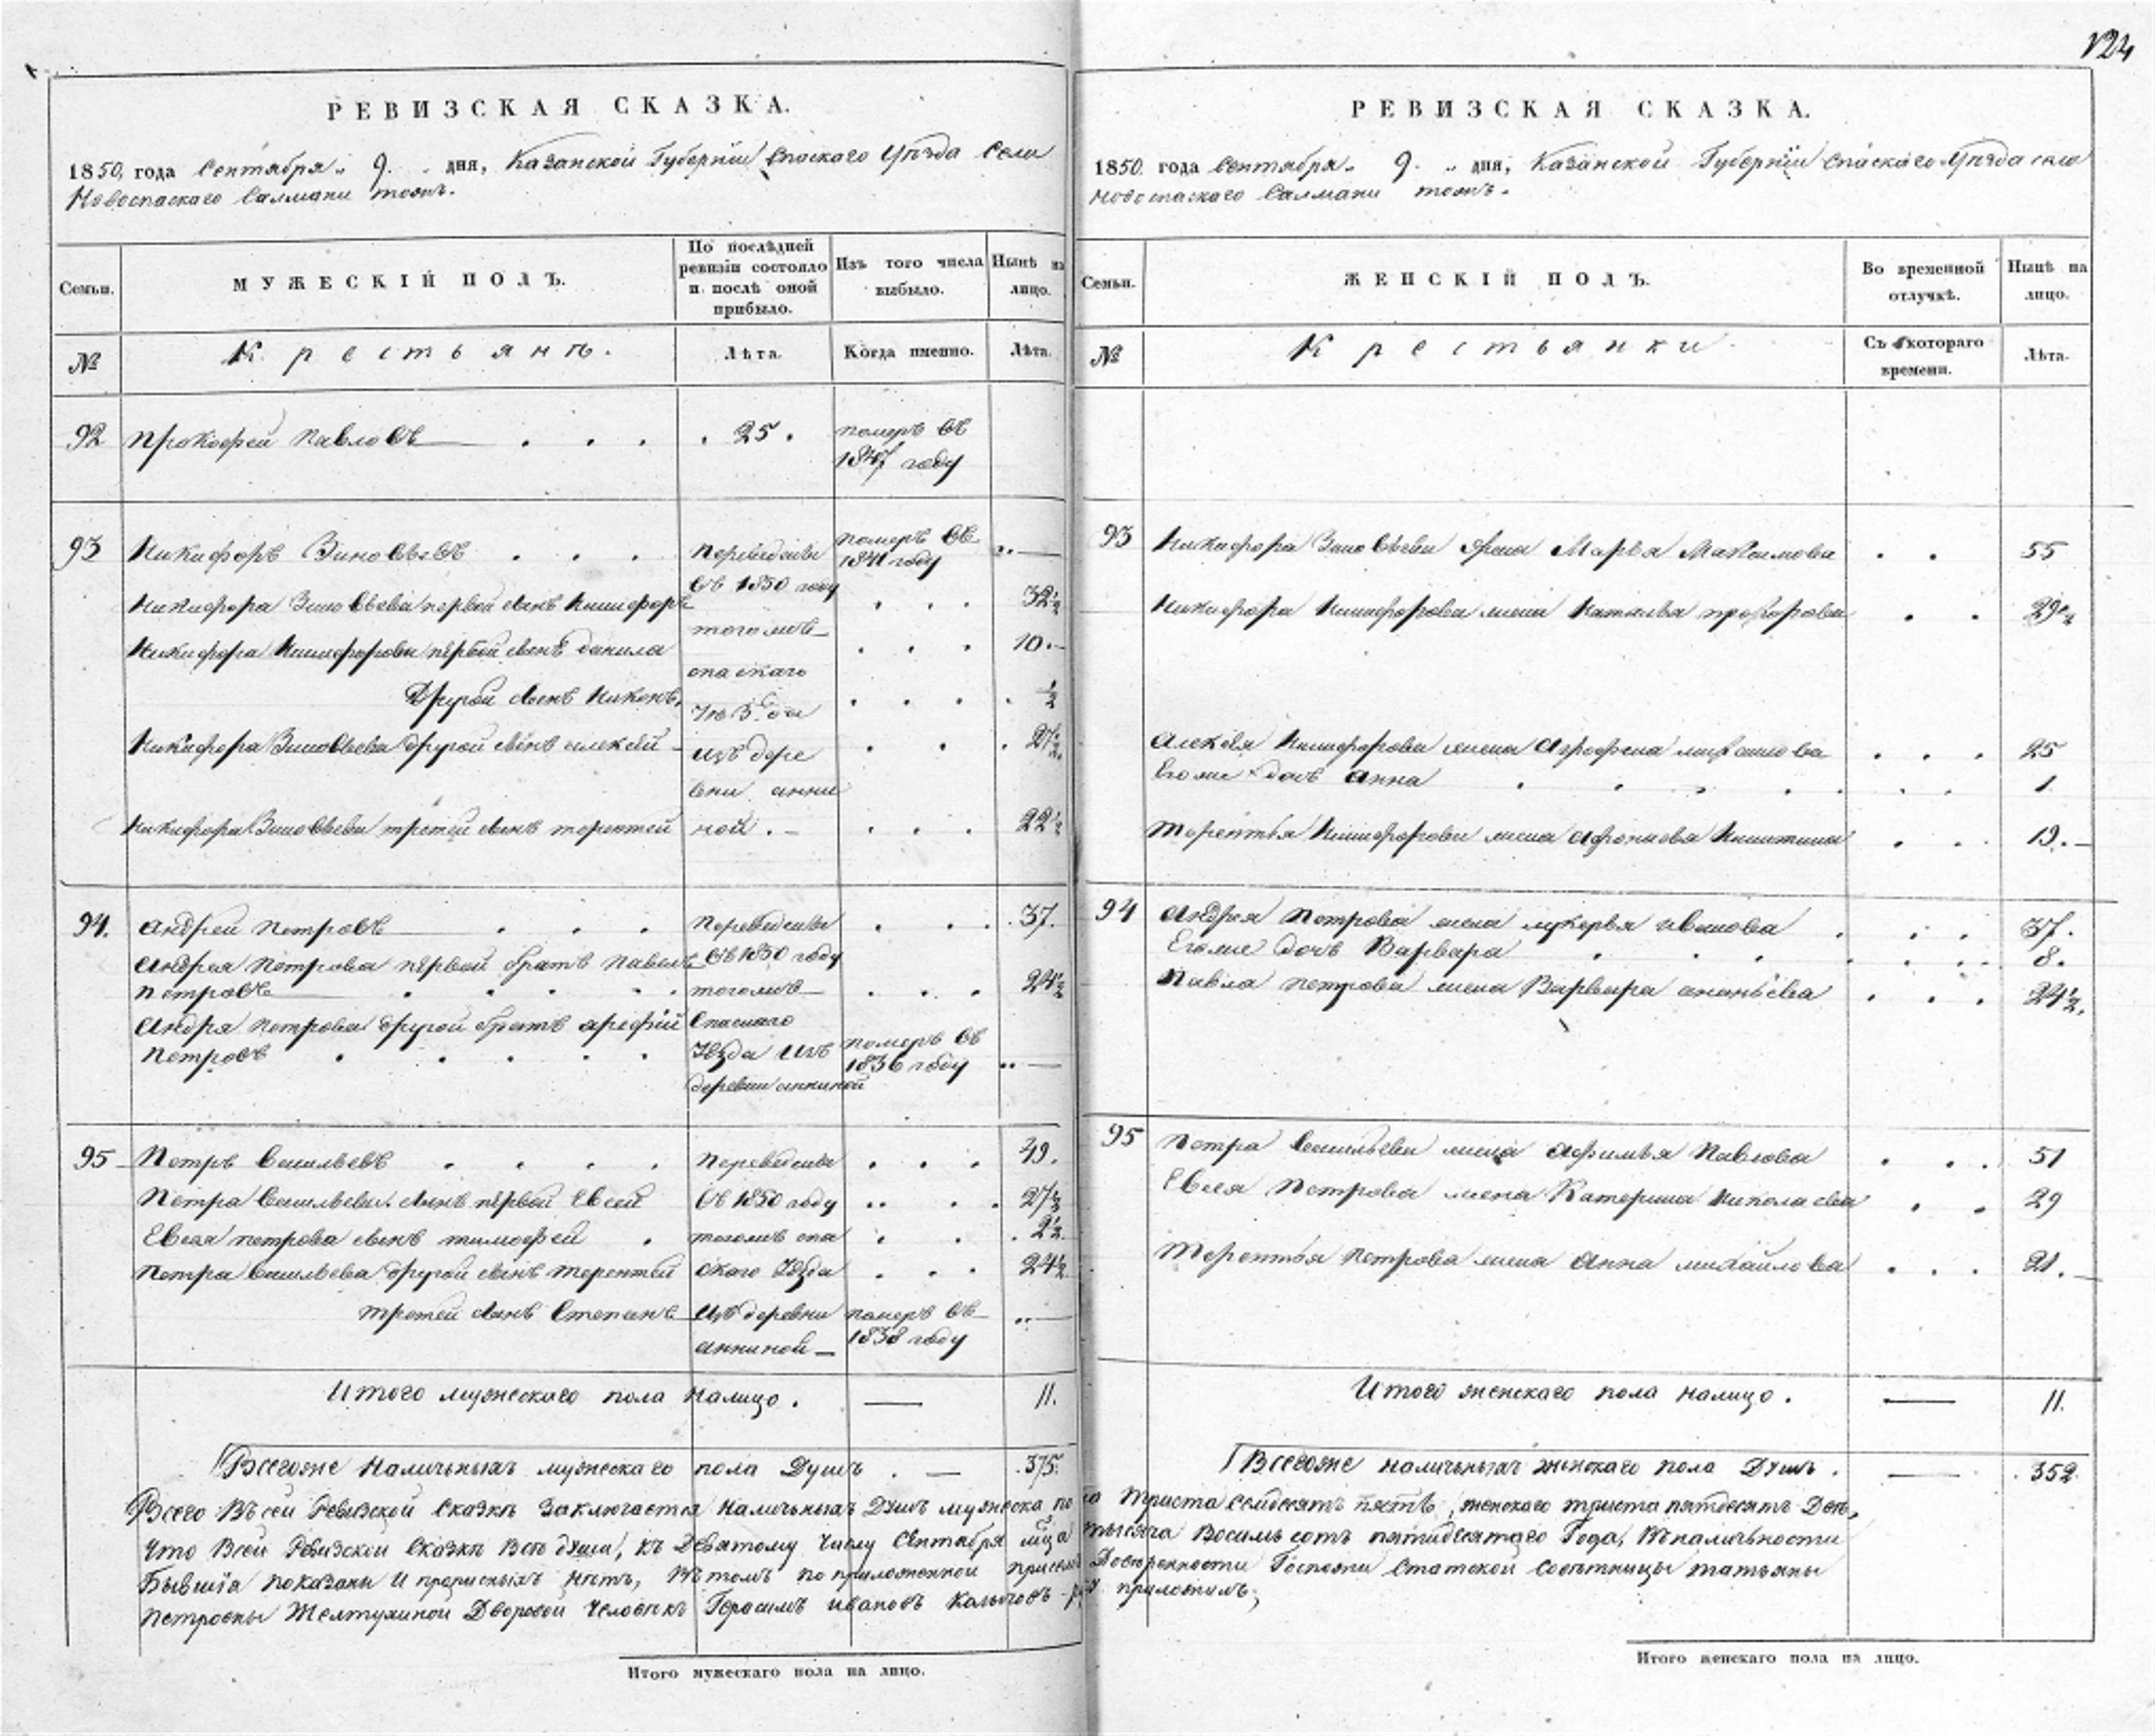 124
РЕВИЗСКАЯ СКАЗКА.
1850 года Сентября 9. дня, Казанской Губернiи Спаскаго Уѣзда Села
Новоспаскаго Салмани тожъ.
Семьи.
МУЖЕСКІЙ ПОЛЪ.
По послѣдней ревизіи состояло и послѣ оной прибыло.
Изъ того числа выбыло.
Нынѣ на лицо.
№
Крестьянъ.
Лѣта.
Когда именно.
Лѣта.
92 Прокофей Павловъ . . . . 25 . померъ въ
1847 году
93 Никифоръ Зиновьевъ . . . Переведены померъ въ
1841 году
въ 1850 году
Никифора Зиновьева первой сынъ Никифоръ . . . 32½
тогожъ
Никифора Никифорова первой сынъ данила . . . 10.
спаскаго
Другой сынъ Никонъ, . . . ½
Уѣзда
Никифора Зиновьева другой сынъ алексѣй . . . 27½
изъ дере
вни анни
Никифора Зиновьева третей сынъ терентей ной. . . . 22½
94. Андрей Петровъ . . . Переведены . . . 37.
Андрея Петрова первой братъ Павелъ въ 1850 году
Петровъ . . . . . тогожъ . . . 24½
Андрея Петрова другой братъ арефiй Спаскаго
Петровъ . . . . . Уѣзда изъ померъ въ
1836 году
деревни анниной
95 Петръ Васильевъ . . . . Переведены . . . 49.
Петра Васильева сынъ первой Евсей въ 1850 году . . . 27½
Евсея петрова сынъ тимофей . тогожъ спа . . . 2½
Петра Васильева другой сынъ терентей скаго Уѣзда . . . 24½
третей сынъ Степанъ изъ деревни померъ въ
анниной 1838 году
Итого мужескаго пола налицо. — 11.
Всегоже Наличныхъ мужескаго пола Душъ . — 375.
РЕВИЗСКАЯ СКАЗКА.
1850 года Сентября 9. дня, Казанской Губернiи Спаскаго Уѣзда села
Новоспаскаго Салмани тожъ.
Семьи.
ЖЕНСКІЙ ПОЛЪ.
Во временной отлучкѣ.
Нынѣ на лицо.
№
Крестьянки
Съ котораго времени.
Лѣта.
93 Никифора Зиновьева жена Марья Максимова . . 55
Никифора Никифорова жена Наталья прохорова . . 29½
Алексѣя Никифорова жена Агрофена
Его же дочь Анна . . . 1
Терентья Никифорова жена Афонасья Никитина . . 19.
94 Андрея Петрова жена лукерья иванова . . . 37.
Его же дочь Варвара . . . 8.
Павла петрова жена Варвара ананьева . . . 24½.
95 Петра Васильева жена Афимья Павлова . . . 51
Евсея Петрова жена Катерина Николаева . . 29
Терентья Петрова жена Анна михайлова . . . 21.
Итого женскаго пола налицо. — 11.
Всегоже наличныхъ женскаго пола Душъ. — 352.
Всего въ сей Ревизской Сказкѣ Заключается наличныхъ Душъ мужеска пола триста семдесятъ пять, женскаго триста пятдесятъ Две,
что всей Ревизской Сказкѣ все души, къ Девятому Числу Сентября мца тысяча Восимьсотъ пятидесятаго Года, въ наличьности
Бывшiя показаны и прописныхъ нѣтъ, Въ томъ по приложенной присемъ Довѣренности Госпожи Статской Советницы татьяны
Петровны Желтухиной Дворовой человѣкъ Герасимъ ивановъ приложилъ;
Итого мужескаго пола на лицо.
Итого женскаго пола на лицо.